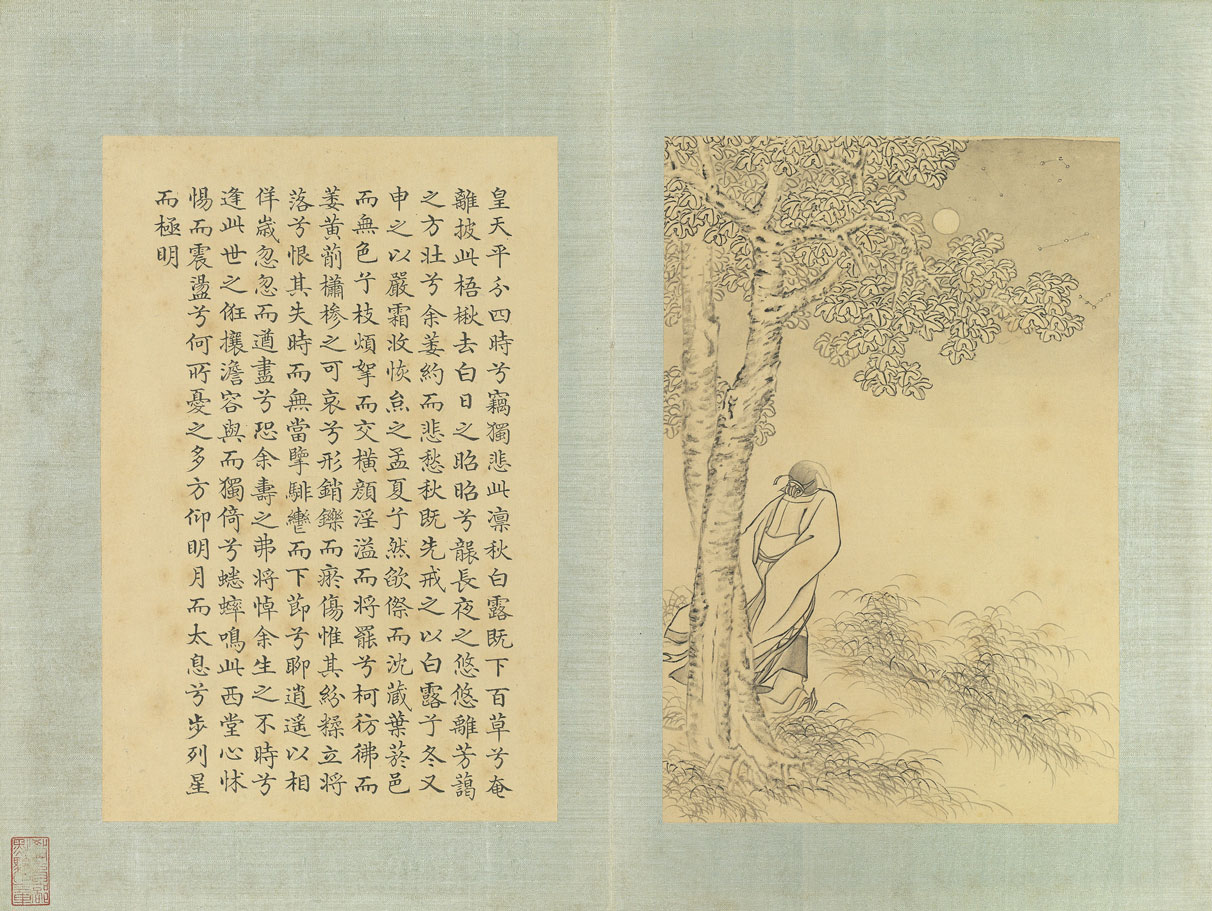 皇天平分四時兮竊獨悲此凛秋白露既下百草兮奄
離披此梧楸去白日之昭昭兮襲長夜之悠悠離芳藹
之方壯兮余萎約而悲愁秋既先戒之以白露兮冬又
申之以嚴霜收恢炱之孟夏兮然欿傺而沈藏葉菸邑
而無色兮枝煩挐而交橫顔淫溢而將罷兮柯彷彿而
萎黃萷櫹槮之可哀兮形銷鑠而瘀傷惟其紛糅立將
落兮恨其失時而無當擥騑轡而下節兮聊逍遥以相
佯嵗忽忽而遒盡兮恐余壽之弗將悼余生之不時兮
逢此世之俇攘澹容與而獨倚兮蟋蟀鳴此西堂心怵
惕而震盪兮何所憂之多方仰明月而太息兮步列星
而極明